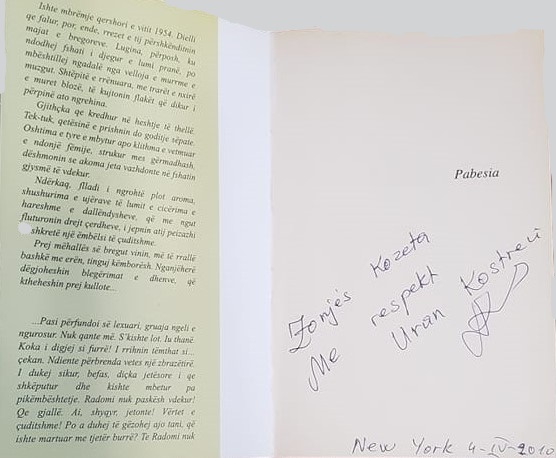 Ishte mbrëmje qershori e vitit 1954. Dielli
qe falur, por, ende, rrezet e tij përshkëndinin
majat e bregoreve. Lugina, përposh, ku
ndodhej fshati i djegur e lumi pranë, po
mbështillej ngadalë nga velloja e murrme e
muzgut. Shtëpitë e rrënuara, me trarët e nxirë
e muret blozë, të kujtonin flakët që dikur i
përpinë ato ngrehina.
Gjithçka qe kredhur në heshtje të thellë.
Tek-tuk, qetësinë e prishnin do goditje sëpate.
Oshtima e tyre e mbytur apo klithma e vetmuar
e ndonjë fëmije, strukur mes gërmadhash,
dëshmonin se akoma jeta vazhdonte në fshatin
gjysmë të vdekur.
Ndërkaq, flladi i ngrohtë plot aroma,
shushurima e ujërave të lumit e cicërima e
hareshme e dallëndysheve, që me ngut
fluturonin drejt çerdheve, i jepnin atij peizazhi
shkretë një ëmbëlsi të çuditshme.
Prej mëhallës së bregut vinin, më të rrallë
bashkë me erën, tinguj këmborësh. Nganjëherë
dëgjoheshin blegërimat e dhenve, që
ktheheshin prej kullote...
...Pasi përfundoi së lexuari, gruaja ngeli e
ngurosur. Nuk qante më. S'kishte lot. Iu thanë.
Koka i digjej si furrë! I rrihnin tëmthat si...
çekan. Ndiente përbrenda vetes një zbrazëtirë.
I dukej sikur, befas, diçka jetësore i qe
shkëputur dhe kishte mbetur pa
pikëmbështetje. Radomi nuk paskësh vdekur!
Qe gjallë. Ai, shyqyr, jetonte! Vërtet e
çuditshme! Po a duhej të gëzohej ajo tani, që
ishte martuar me tjetër burrë? Te Radomi nuk
Pabesia
Zonjës Kozeta
Me respekt
Uran Kostreci
New York 4-IV-2010